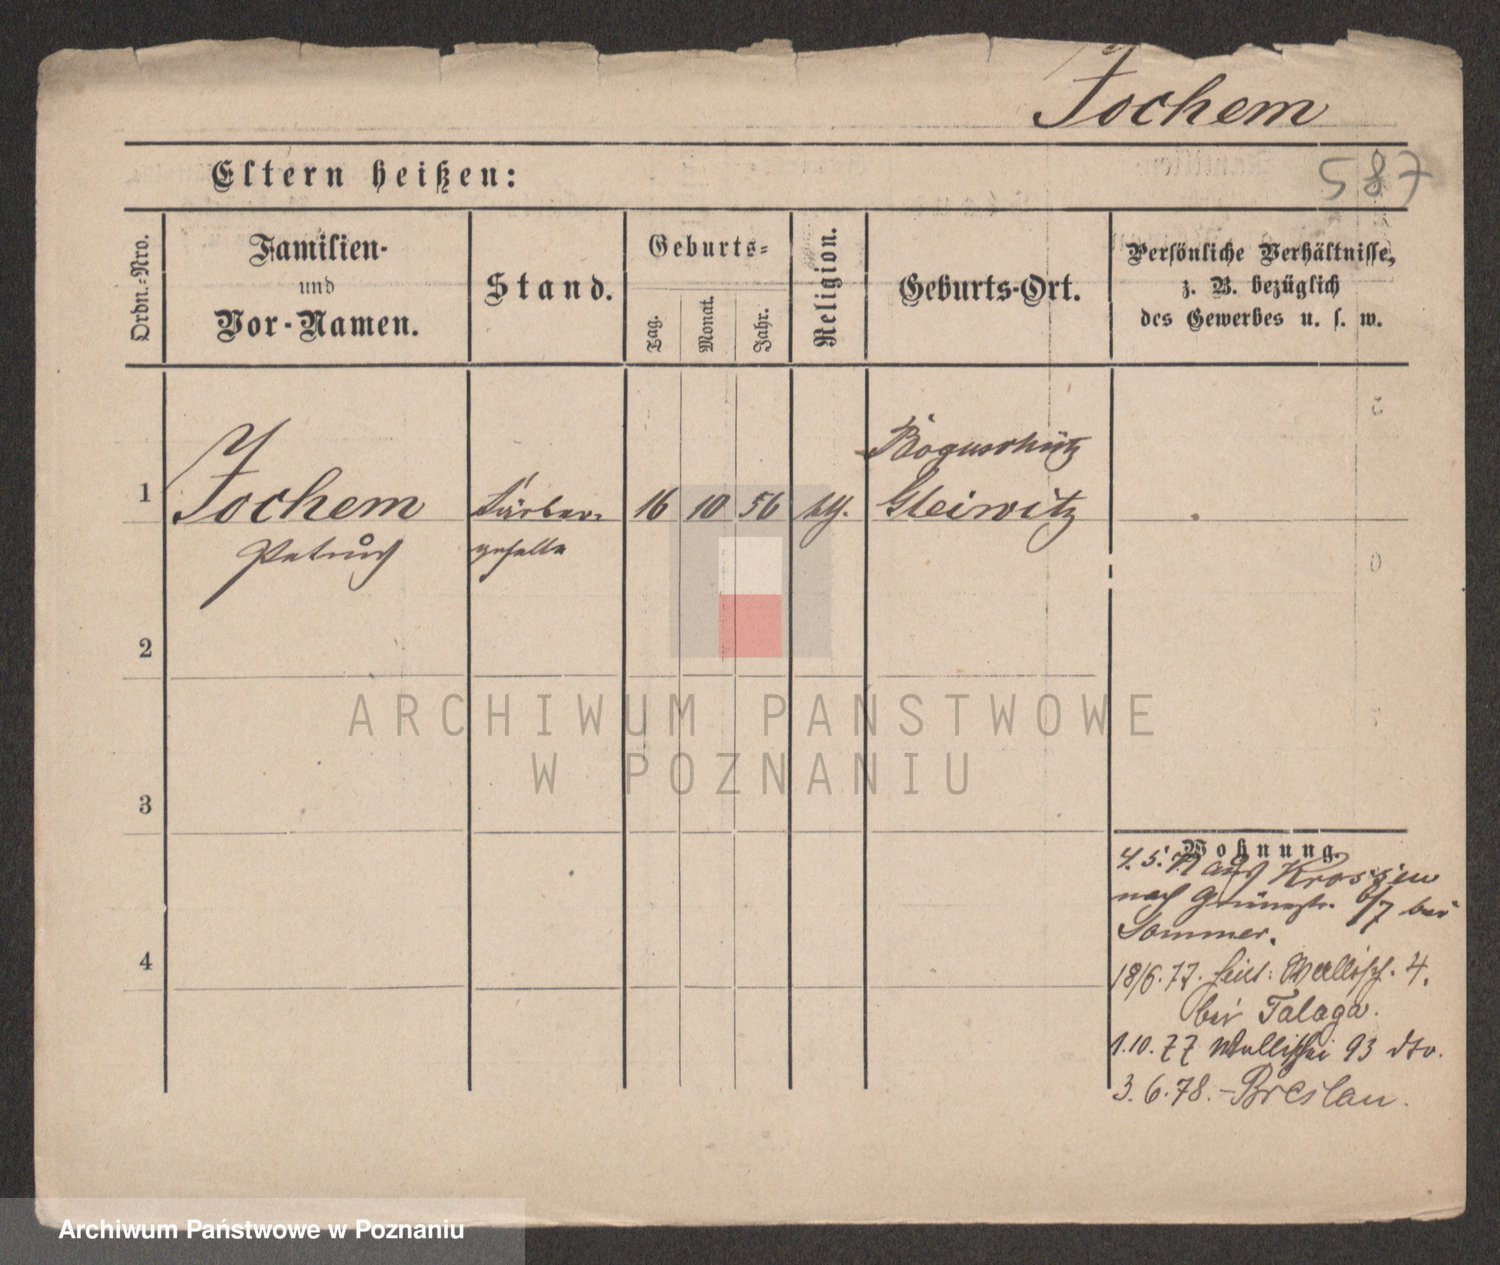 Jochem
587
Eltern heißen:
Ordn.-Nro.
Familien-
und
Vor-Namen.
Stand.
Geburts-
Tag.
Monat.
Jahr.
Religion.
Geburts-Ort.
Persönliche Verhältnisse,
z. B. bezüglich
des Gewerbes u. s. w.
1
Jochem
Petrus
Färber-
geselle
16
10
56
kth.
Boguschütz
Gleiwitz
2
3
4
Wohnung.
4.5.77 aus Krossen
nach Grünestr. 6/7 bei
Sommer.
18/6.77. Wallisch. 4.
bei Talaga.
1.10.77 Wallischei 93 dto.
3.6.78.-Breslau.
ARCHIWUM PAŃSTWOWE
W POZNANIU
Archiwum Państwowe w Poznaniu